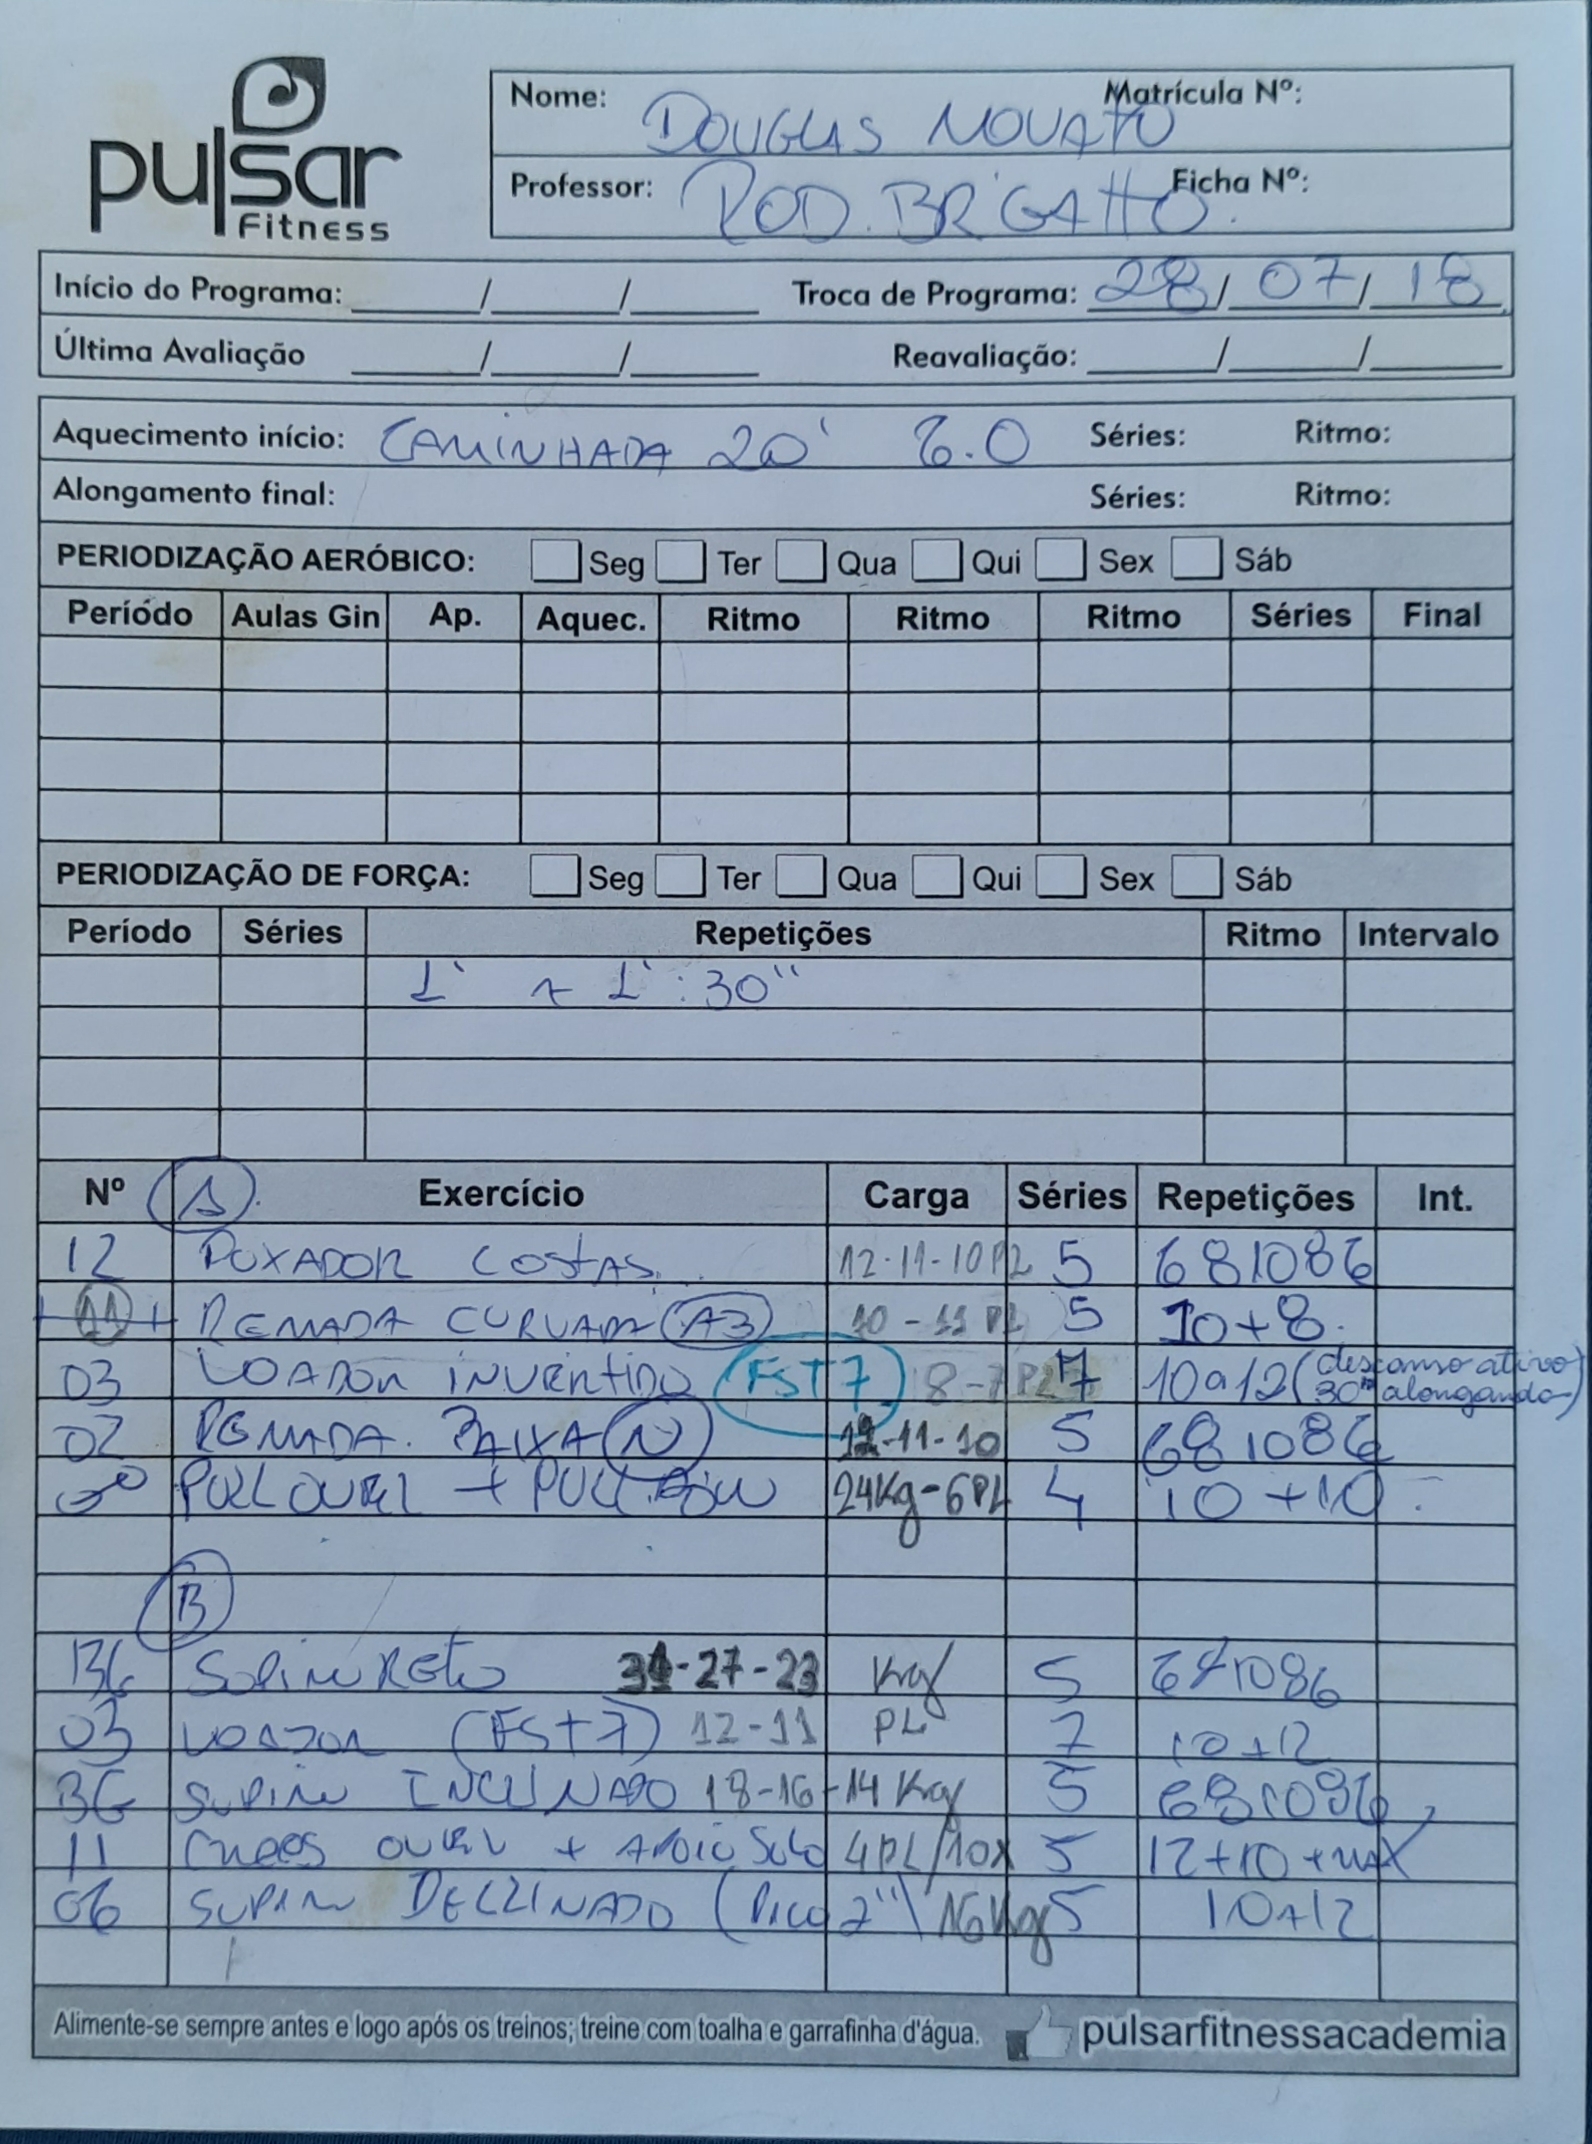 pulsar
Fitness
Nome: DOUGLAS NOVATO Matrícula Nº:
Professor: ROD. BRIGATTO. Ficha Nº:
Início do Programa: ____/____/____ Troca de Programa: 28/07/18
Última Avaliação ____/____/____ Reavaliação: ____/____/____
Aquecimento início: CAMINHADA 20' 6.0 Séries: Ritmo:
Alongamento final: Séries: Ritmo:
PERIODIZAÇÃO AERÓBICO: Seg Ter Qua Qui Sex Sáb
Período Aulas Gin Ap. Aquec. Ritmo Ritmo Ritmo Séries Final
PERIODIZAÇÃO DE FORÇA: Seg Ter Qua Qui Sex Sáb
Período Séries Repetições Ritmo Intervalo
1' A 1':30"
Nº A Exercício Carga Séries Repetições Int.
12 PUXADOR COSTAS 12-11-10 PL 5 681086
11 REMADA CURVADA (A3) 10-11 PL 5 10+8
03 VOADOR INVERTIDO (FST7) 8-7 PL 7 10a12 (descanso ativo 30" alongando)
02 REMADA BAIXA (N) 12-11-10 5 681086
PULLOVER + PULL DOWN 24Kg-6PL 4 10+10
B
SUPINO RETO 27-23 Kg 5 681086
03 VOADOR (FST7) 12-11 PL 7 10 A 12
SUPINO INCLINADO 18-16-14 Kg 5 681086
11 CROSS OVER + APOIO SOLO 4PL/10X 5 12+10+MAX
06 SUPINO DECLINADO (PICO 2") 16Kg 5 10 A 12
Alimente-se sempre antes e logo após os treinos; treine com toalha e garrafinha d'água. pulsarfitnessacademia